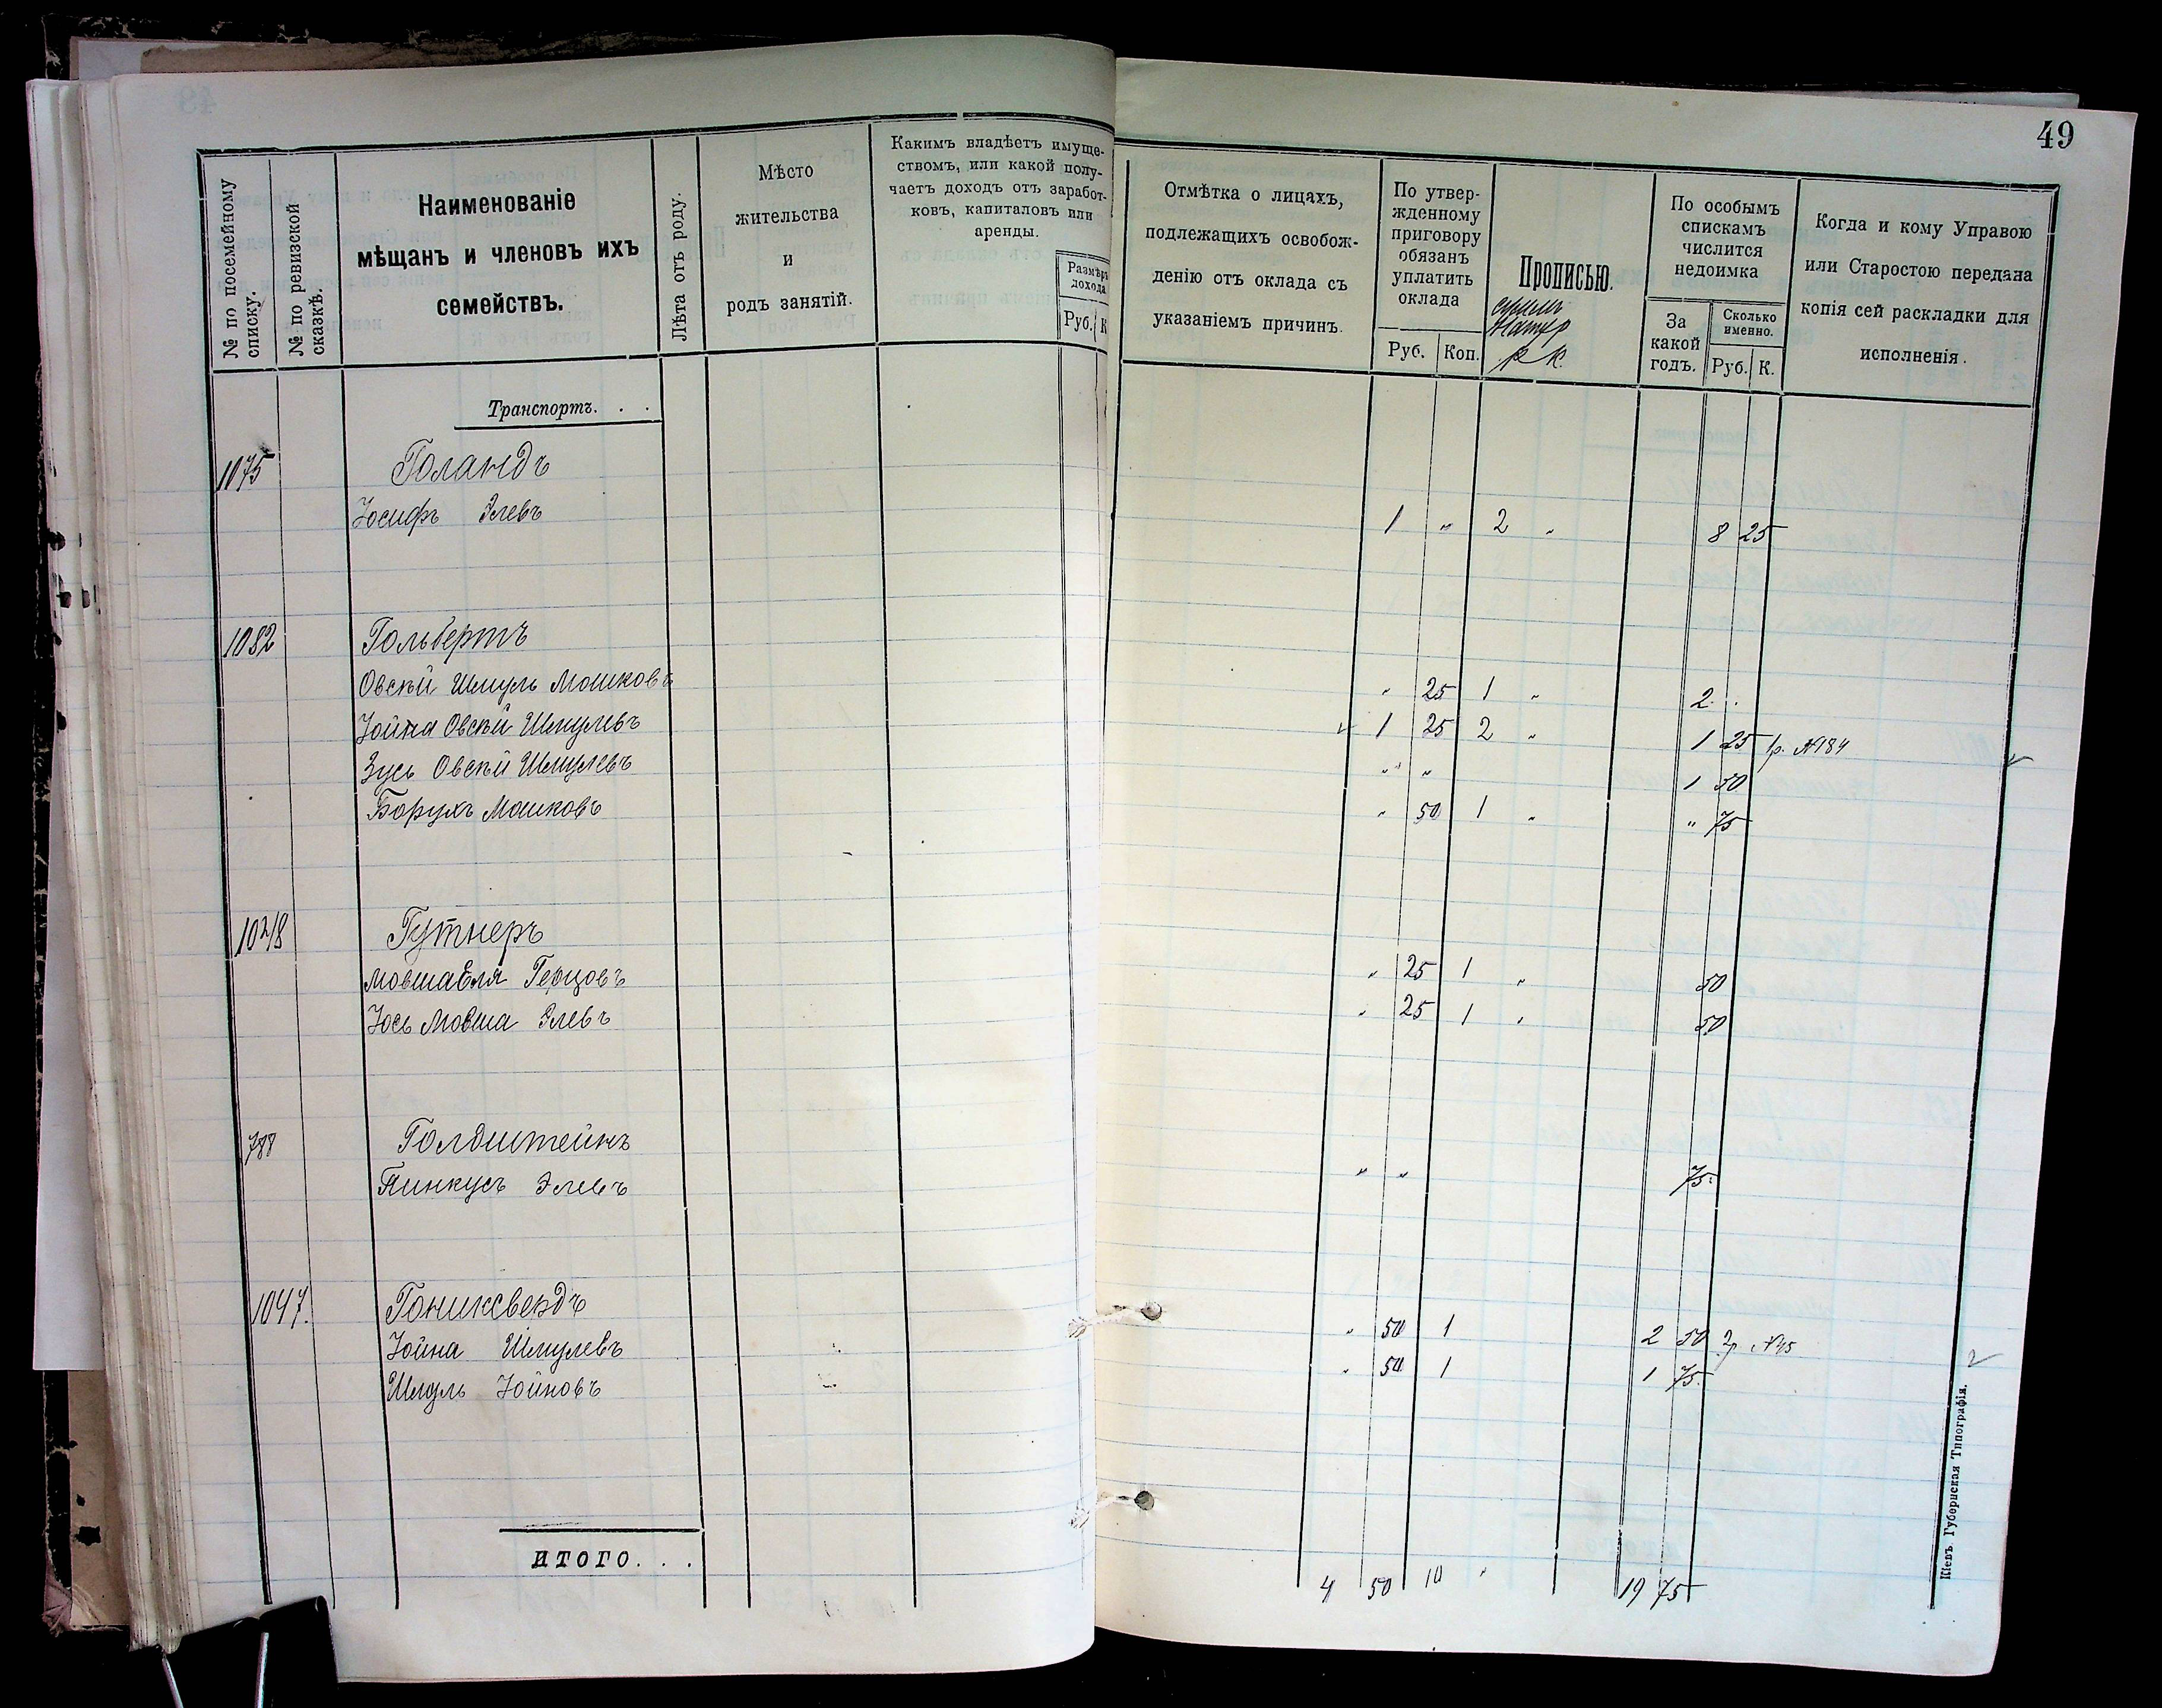 49
№ по посемейному списку.
№ по ревизской сказкѣ.
Наименованіе
мѣщанъ и членовъ ихъ
семействъ.
Лѣта отъ роду.
Мѣсто
жительства
и
родъ занятій.
Какимъ владѣетъ имуще-
ствомъ, или какой полу-
чаетъ доходъ отъ заработ-
ковъ, капиталовъ или
аренды.
Размѣръ
дохода
Руб. К
Отмѣтка о лицахъ,
подлежащихъ освобож-
денію отъ оклада съ
указаніемъ причинъ.
По утвер-
жденному
приговору
обязанъ
уплатить
оклада
Руб. Коп.
Прописью.
р К.
По особымъ
спискамъ
числится
недоимка
За
какой
годъ.
Сколько
именно.
Руб. К.
Когда и кому Управою
или Старостою передана
копія сей раскладки для
исполненія.
Транспортъ. . .
1075 Голандъ
Іосифъ Элевъ 1 " 2 " 8 25
1082 Гольбертъ
Овсѣй Шмуль Мошковъ " 25 1 " 2 "
Іойна Овсѣй Шмулевъ 1 25 2 " 1 25 1р. №184
Зусь Овсѣй Шмулевъ " " 1 50
Борухъ Мошковъ " 50 1 " " 75
1028 Гутнеръ
Мовша Еля Герцовъ " 25 1 " 50
Іось Мовша Элевъ " 25 1 " 50
788 Голдштейнъ
Пинкусъ Элевъ " " 75
1047. Гониксвердъ
Іойна Шмулевъ " 50 1 2 50 2р №45
Шмуль Іойновъ " 50 1 1 75
ИТОГО. . . 4 50 10 " 19 75
Кіевъ. Губернская Типографія.